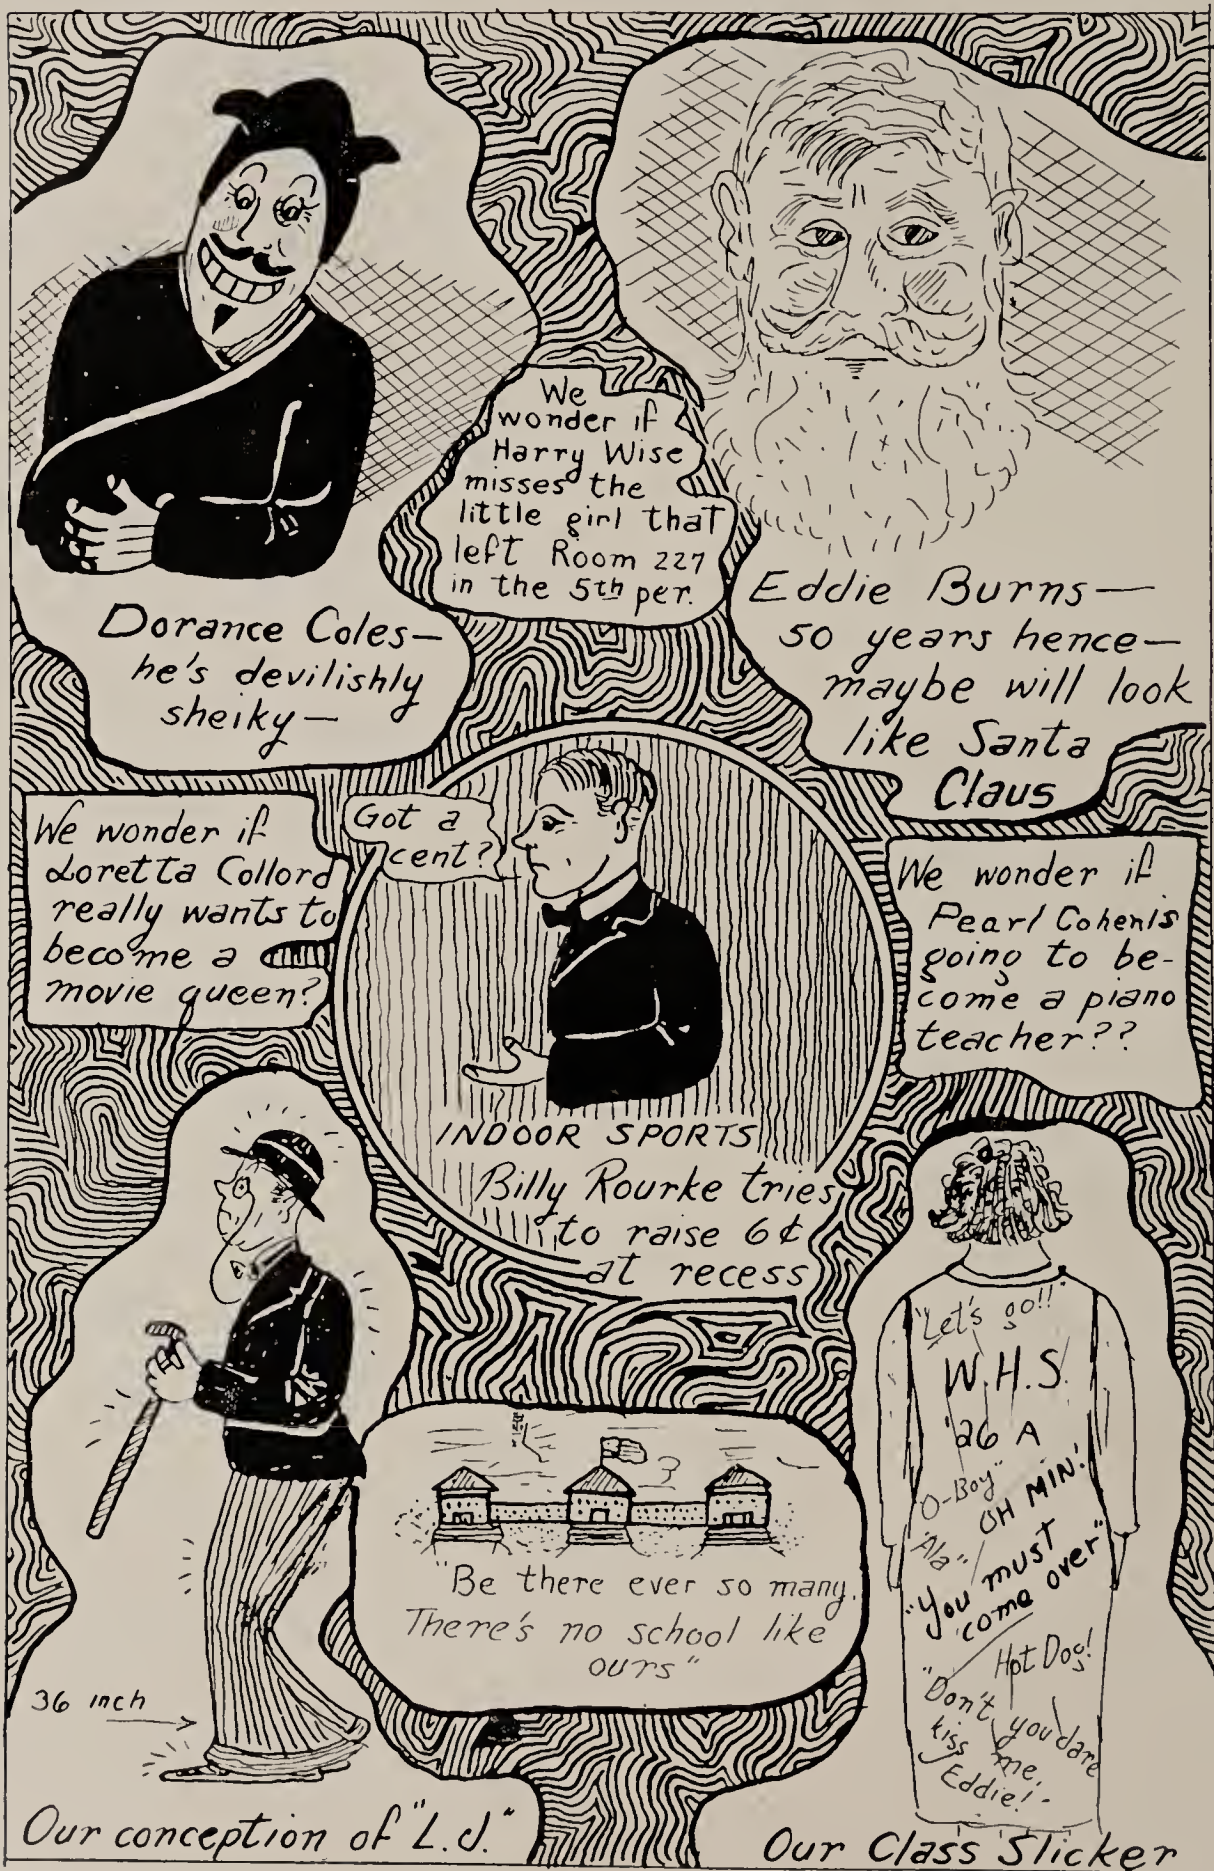 Dorance Coles—
he's devilishly
sheiky—
We
wonder if
Harry Wise
misses the
little girl that
left Room 227
in the 5th per.
Eddie Burns—
50 years hence—
maybe will look
like Santa
Claus
We wonder if
Loretta Collord
really wants to
become a
movie queen?
Got a
cent?
INDOOR SPORTS
Billy Rourke tries
to raise 6¢
at recess
We wonder if
Pearl Cohen is
going to be-
come a piano
teacher??
36 inch
Our conception of "L.J."
"Be there ever so many.
There's no school like
ours"
"Let's go!!
W.H.S.
'26 A
O-Boy"
OH MIN!
Ala"
"You must
come over"
Hot Dog!
"Don't you dare
kiss me,
Eddie!"
Our Class Slicker